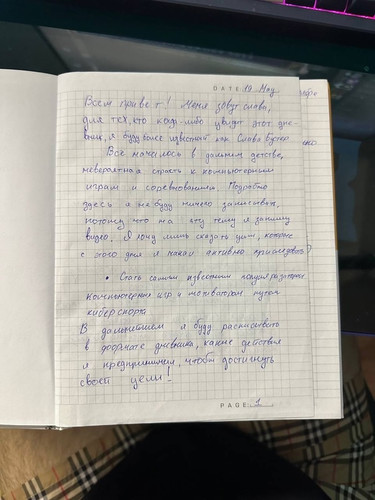 DATE 19 May
Всем привет! Меня зовут Слава,
для тех, кто когда-либо увидит этот дне-
вник, я буду более известный как Слава
Всё началось в далёком детстве,
невероятная страсть к компьютерным
играм и соревнованиям. Подробно
здесь я не буду ничего записывать,
потому что на эту тему я запишу
видео. Я хочу лишь сказать цель, которую
с этого дня я начал активно преследовать
• Стать самым известным популяризатором
компьютерных игр и мотиватором путём
киберспорта
В дальнейшем я буду расписывать
в формате дневника, какие действия
я предпринимал, чтобы достигнуть
своей цели!
PAGE 1